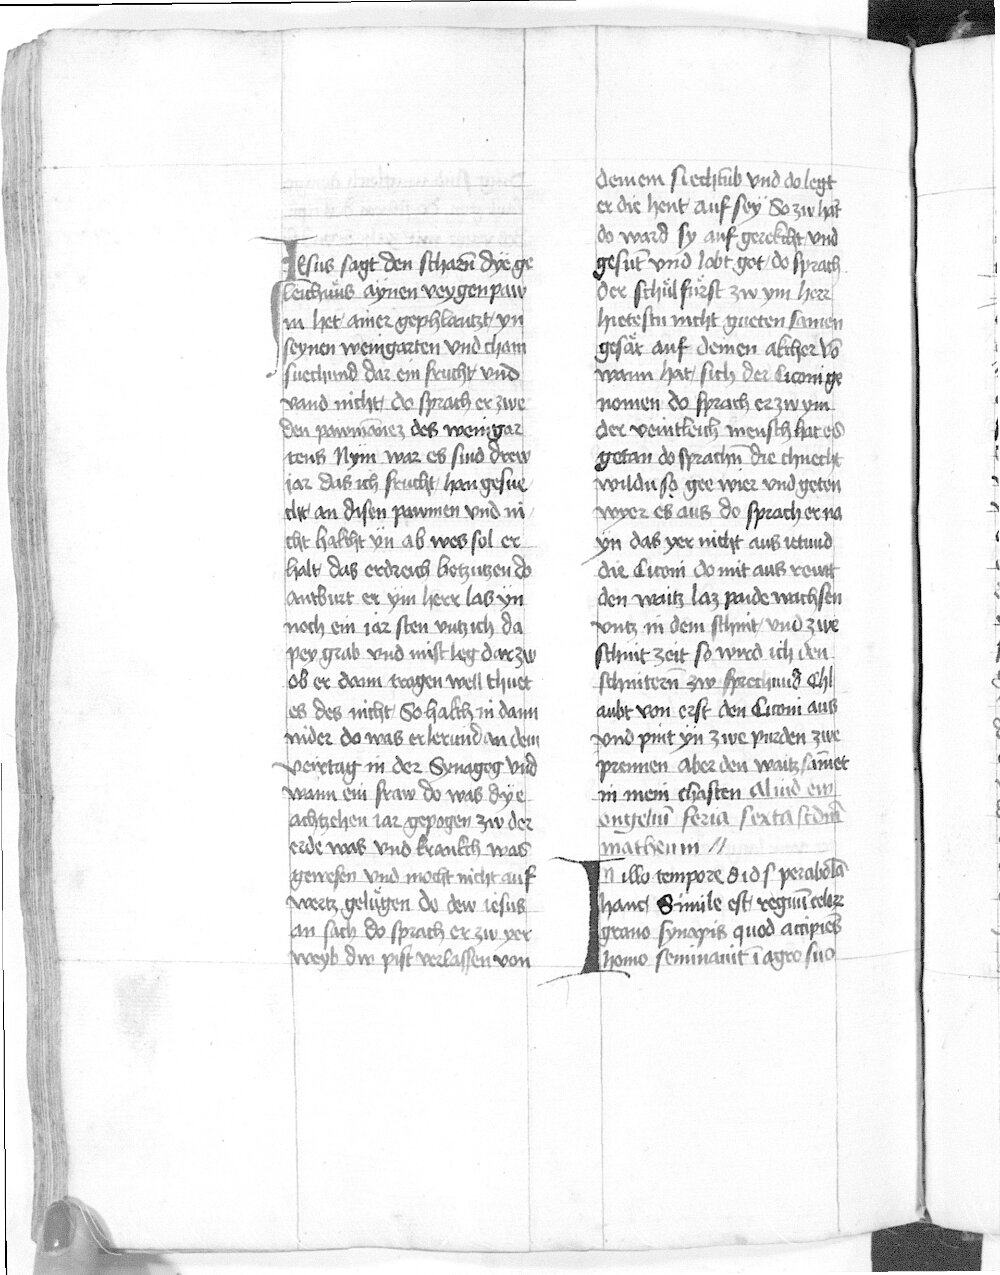 Jesus sagt den scharn̄ dye ge
leichnüs aynen veygenpaw
m het ainer gephlantzt yn
seynen weingarten vnd cham
suechund dar ein frucht vnd
vand nicht do sprach er zwe
den pawmanez des weingar
tens Nym war es sind drew
iar das ich frucht han gesue
cht an disen pawmen vnd ni
cht hakcht yn ab wes sol er
halt das erdreich betzutzen do
antburt er ym herr las yn
noch ein iar sten vntz ich da
pey grab vnd mist leg dar zw
ob er dann tragen well thuet
es des nicht So hakch in dann
nider do was er lerund an dem
veirtag in der Synagog vnd
wann ein fraw do was dye
achtzehen iar gepogen zw der
erde was vnd krankch was
gewesen vnd mocht nicht auf
wertz gelügen do dew iesus
an sach do sprach er zw yer
weyb dw pist verlassen von
deinem siechtub vnd do legt
er die hent auf sey So zw hat
do ward sy auf gerekcht vnd
gesut vnd lobt got do sprach
der schülfürst zw ym herr
hietestu nicht gueten samen
gesät auf deinen akcher vō
wann hat sich der Litoni ge
nomen do sprach er zw ym
der veintleich mensch hat es
getan do sprachn̄ die chnecht
wildu so gee wier vnd geten
wyer es aus do sprach er na
yn das yer nicht aus ietund
die Litoni do mit aus reutt
den waitz laz paide wachsen
vntz in dem schnit vnd zwe
schnit zeit so wird ich den
schnitern̄ zw sprechund Chl
aubt von erst den Litoni aus
vnd pint yn zwe purden zwe
prennen aber den waitz samet
in mein chasten Aliud ew
engeliū feria sexta scdm̄
matheum //
In illo tempore d ids s perabolā
hanc Simile est regnū celor
grano synapis quod accipiēs
homo seminauit ī agro suo